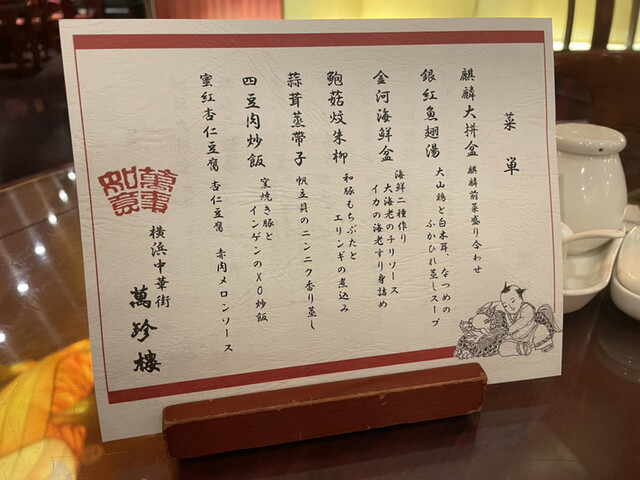 菜単
麒麟大拼盆 麒麟前菜盛り合わせ
銀紅魚翅湯 大山鶏と白木耳、なつめの
ふかひれ蒸しスープ
金河海鮮盆 海鮮二種作り
大海老のチリソース
イカの海老すり身詰め
鮑菇炆朱柳 和豚もちぶたと
エリンギの煮込み
蒜茸蒸帯子 帆立貝のニンニク香り蒸し
四豆肉炒飯 窯焼き豚と
インゲンのXO炒飯
蜜紅杏仁豆腐 杏仁豆腐 赤肉メロンソース
萬事如意
横浜中華街
萬珍樓